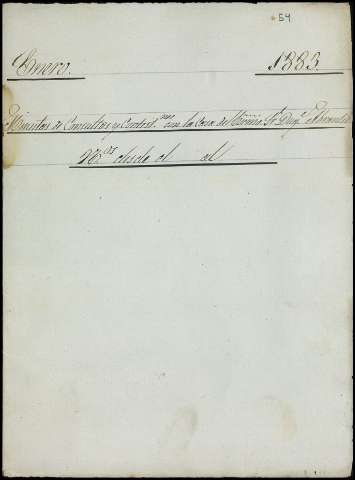 54
Enero. 1883.
Minutas de Consultas y Contest.nes con la Casa del Excmo. Sr. Duq.e
N.os desde el al